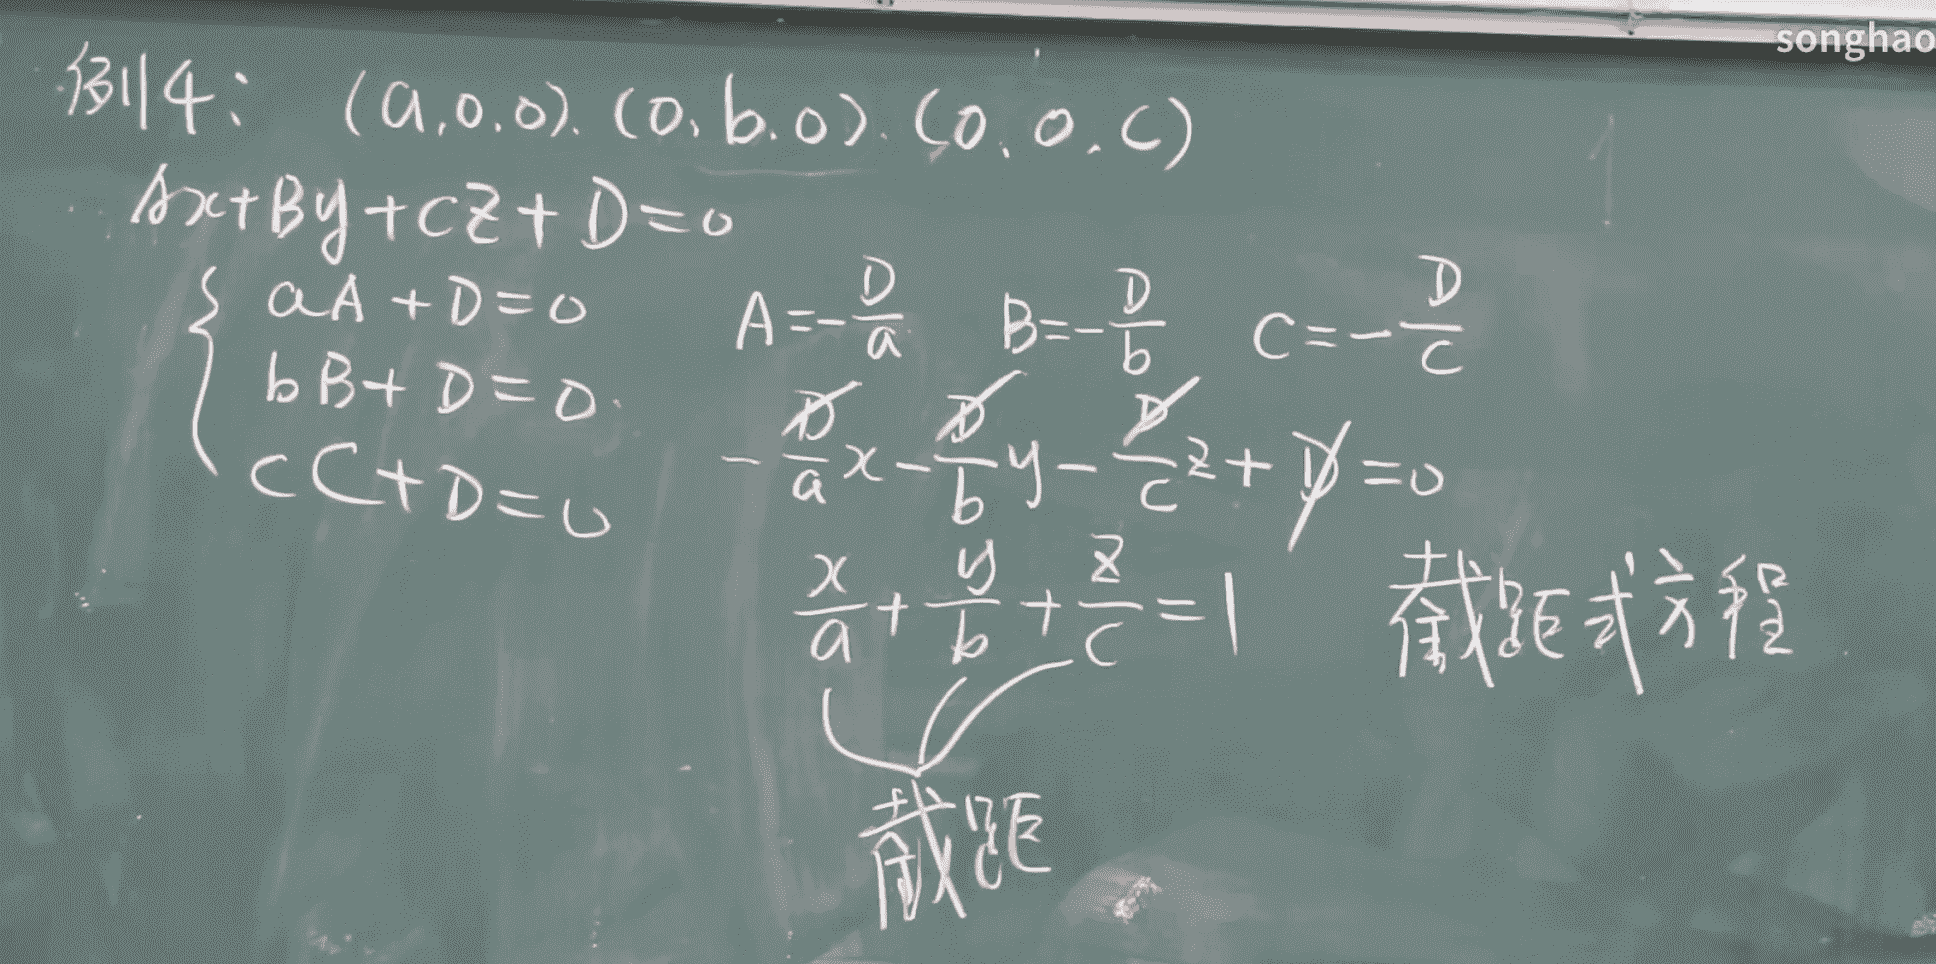 songhao
例4: (a,0.0).(0,b.0).(0.0.c)
Ax+By+Cz+D=0
{ aA+D=0
bB+D=0
cC+D=0
A=-D/a B=-D/b C=-D/c
-D/a x-D/b y-D/c z+D=0
x/a+y/b+z/c=1 截距式方程
截距